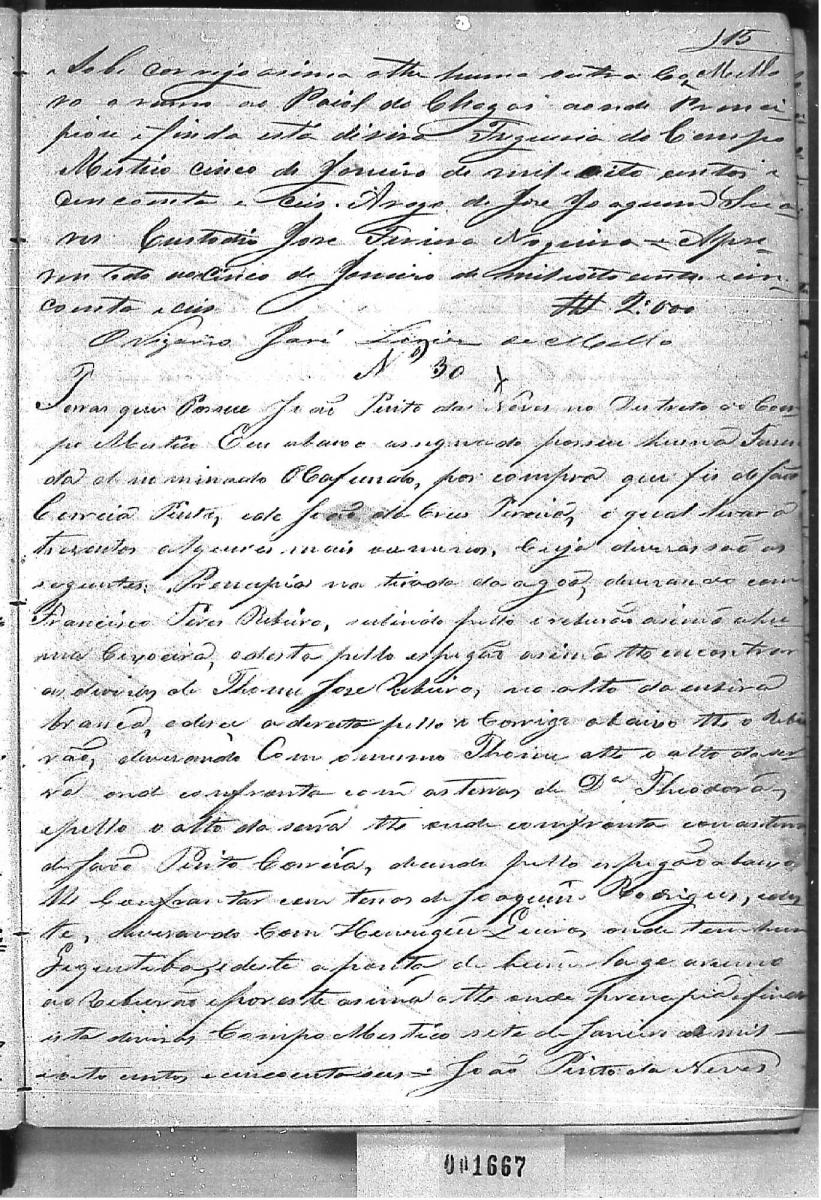 115
e Sobe correjo asima athe huma outra Ca
vo o rumo ao Paiol do Chagas aonde Princi-
piou e finda esta diviza Freguesia do Campo
Mestico cinco de Janeiro de mil e oito centos e
cincoenta e ceis. Arogo de Jose Joaquim Soa-
res Custodio Jose Ferreira Nogueira = Apre-
zentado aos cinco de Janeiro de mil e oito centos e cin-
coenta e ceis 2:000
O Vigario José Xavier de Mello
Nº 30
Terras que Possue João Pinto das Neves no Destreto do Cam-
po Mestico Eu abaixo asignado possuo huma Fazen
da denominado O Cafundão, por compra que fis de João
Correia Pinto, e de João da Crus Pereira, o qual levará
trezentos alqueires mais ou menos, Cujas divizas são as
seguintes: Prencepia na tirada da agoa, devizando com
Francisco Pires Ribeiro, subindo pello reberão asima a hu-
ma Caxoeira, e desta pello espigão asima the encontrar
as divizas de Thome Jose Ribeiro, no alto da
branca, e dece a dereita pello Corrigo abaixo the o Ribi
rão, devizando Com o mesmo Thome athe o alto da ser-
ra onde confronta com as terras de Dª Theodora,
e pello o alto da serra the onde confronta com as terras
de João Pinto Correia, decendo pello espigão abaixo
the Confrontar com terras de Joaquim Rodrigues, e des-
te, devizando Com Henrique onde tem hum
Gequentiba, e deste a ponta de huma lage a rumo
ao Reberão e por este asima athe onde prencepia e finda
esta divizas Campo Mestico sete de Janeiro de mil
e oito centos e cincoenta seis = João Pinto das Neves
001667